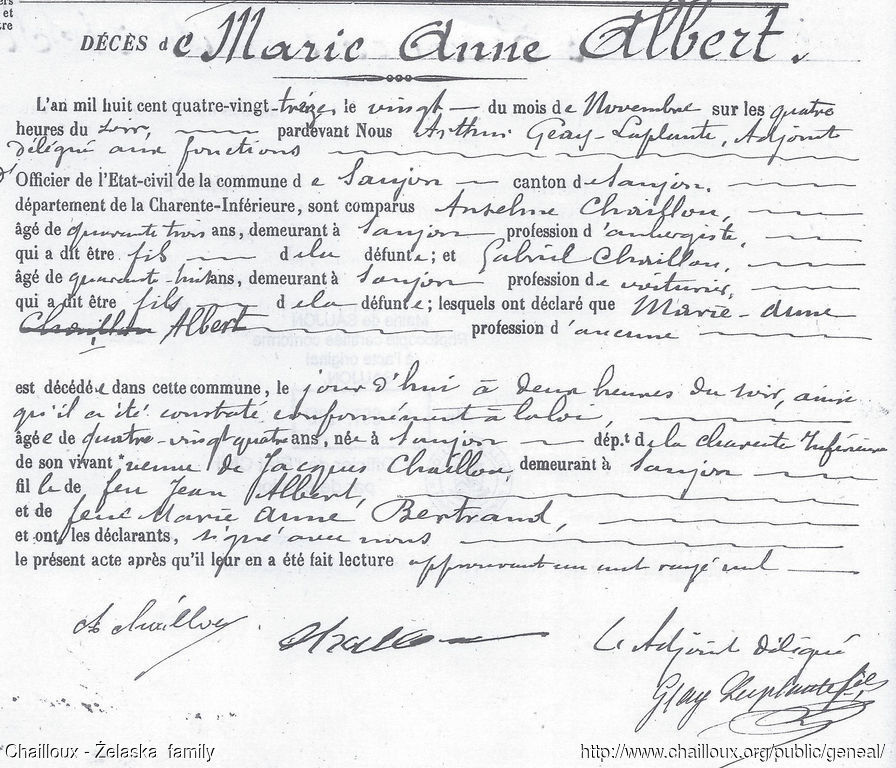 et
tre
DÉCÈS de Marie Anne Albert.
L'an mil huit cent quatre-vingt-treize, le vingt du mois de Novembre sur les quatre
heures du soir, pardevant Nous Arthur Geay-Laplante, Adjoint
délégué aux fonctions
Officier de l'Etat-civil de la commune de Saujon canton de Saujon,
département de la Charente-Inférieure, sont comparus Anselme Chailloux,
âgé de quarante trois ans, demeurant à Saujon profession d'aubergiste,
qui a dit être fils de la défunte; et Gabriel Chailloux,
âgé de quarante-huit ans, demeurant à Saujon profession de voiturier,
qui a dit être fils de la défunte; lesquels ont déclaré que Marie-Anne
Chailloux Albert profession d'aucune
est décédée dans cette commune, le jour d'hui à deux heures du soir, ainsi
qu'il a été constaté conformément à la loi,
âgée de quatre-vingt quatre ans, née à Saujon dép.t de la Charente Inférieure
de son vivant veuve de Jacques Chailloux demeurant à Saujon
fille de feu Jean Albert,
et de feue Marie Anne Bertrand,
et ont, les déclarants, signé avec nous
le présent acte après qu'il leur en a été fait lecture approuvant un mot rayé nul
A Chailloux
Chailloux
L'Adjoint délégué
Geay Laplante fils
Chailloux - Żelaska family
http://www.chailloux.org/public/geneal/